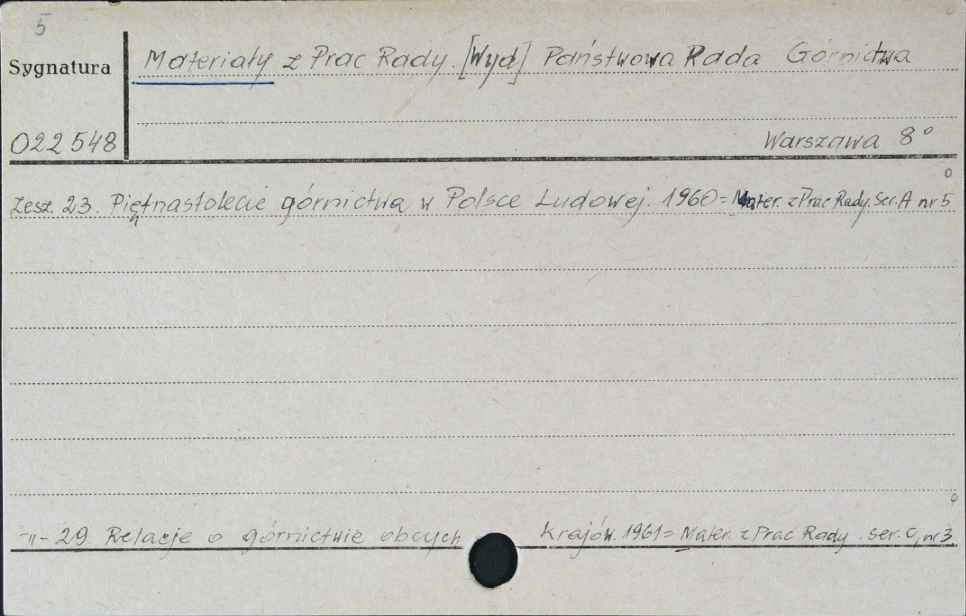 5
Sygnatura
Materiały z Prac Rady. [Wyd] Państwowa Rada Górnictwa
022548
Warszawa 8°
Zesz. 23. Piętnastolecie górnictwa w Polsce Ludowej. 1960 = Mater. z Prac Rady. Ser. A nr 5
-"- 29 Relacje o górnictwie obcych krajów. 1961 = Mater. z Prac Rady. ser. C, nr 3